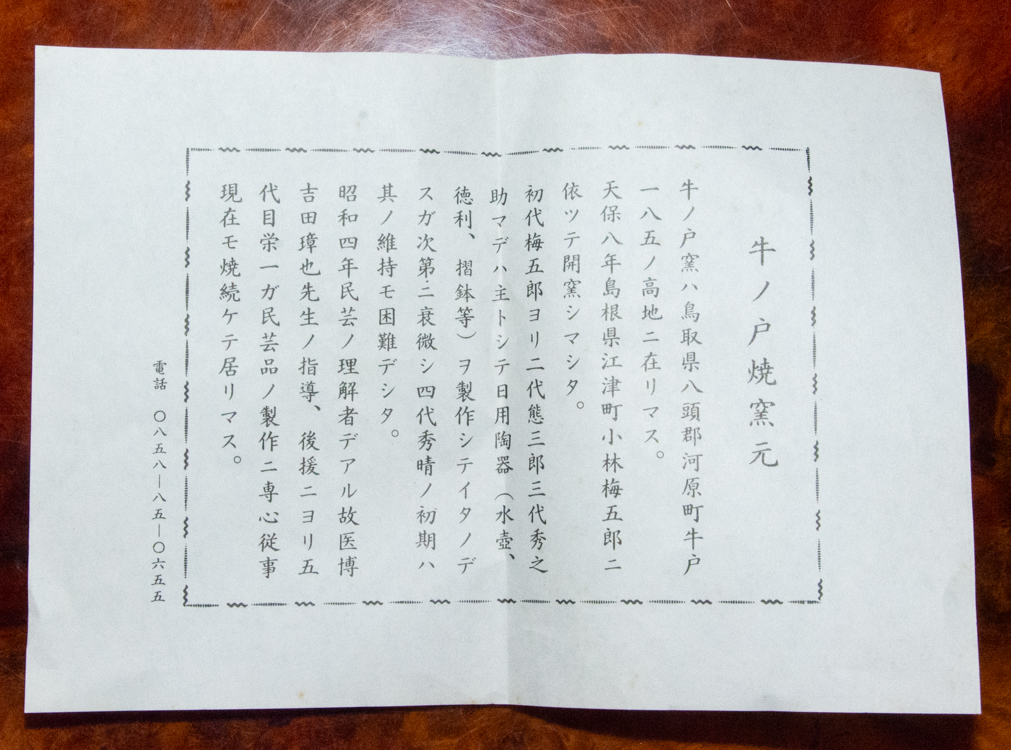 牛ノ戸焼窯元
牛ノ戸窯ハ鳥取県八頭郡河原町牛戸
一八五ノ高地ニ在リマス。
天保八年島根県江津町小林梅五郎ニ
依ツテ開窯シマシタ。
初代梅五郎ヨリ二代態三郎三代秀之
助マデハ主トシテ日用陶器（水壺、
徳利、摺鉢等）ヲ製作シテイタノデ
スガ次第ニ衰微シ四代秀晴ノ初期ハ
其ノ維持モ困難デシタ。
昭和四年民芸ノ理解者デアル故医博
吉田璋也先生ノ指導、後援ニヨリ五
代目栄一ガ民芸品ノ製作ニ専心従事
現在モ焼続ケテ居リマス。
電話 〇八五八―八五―〇六五五